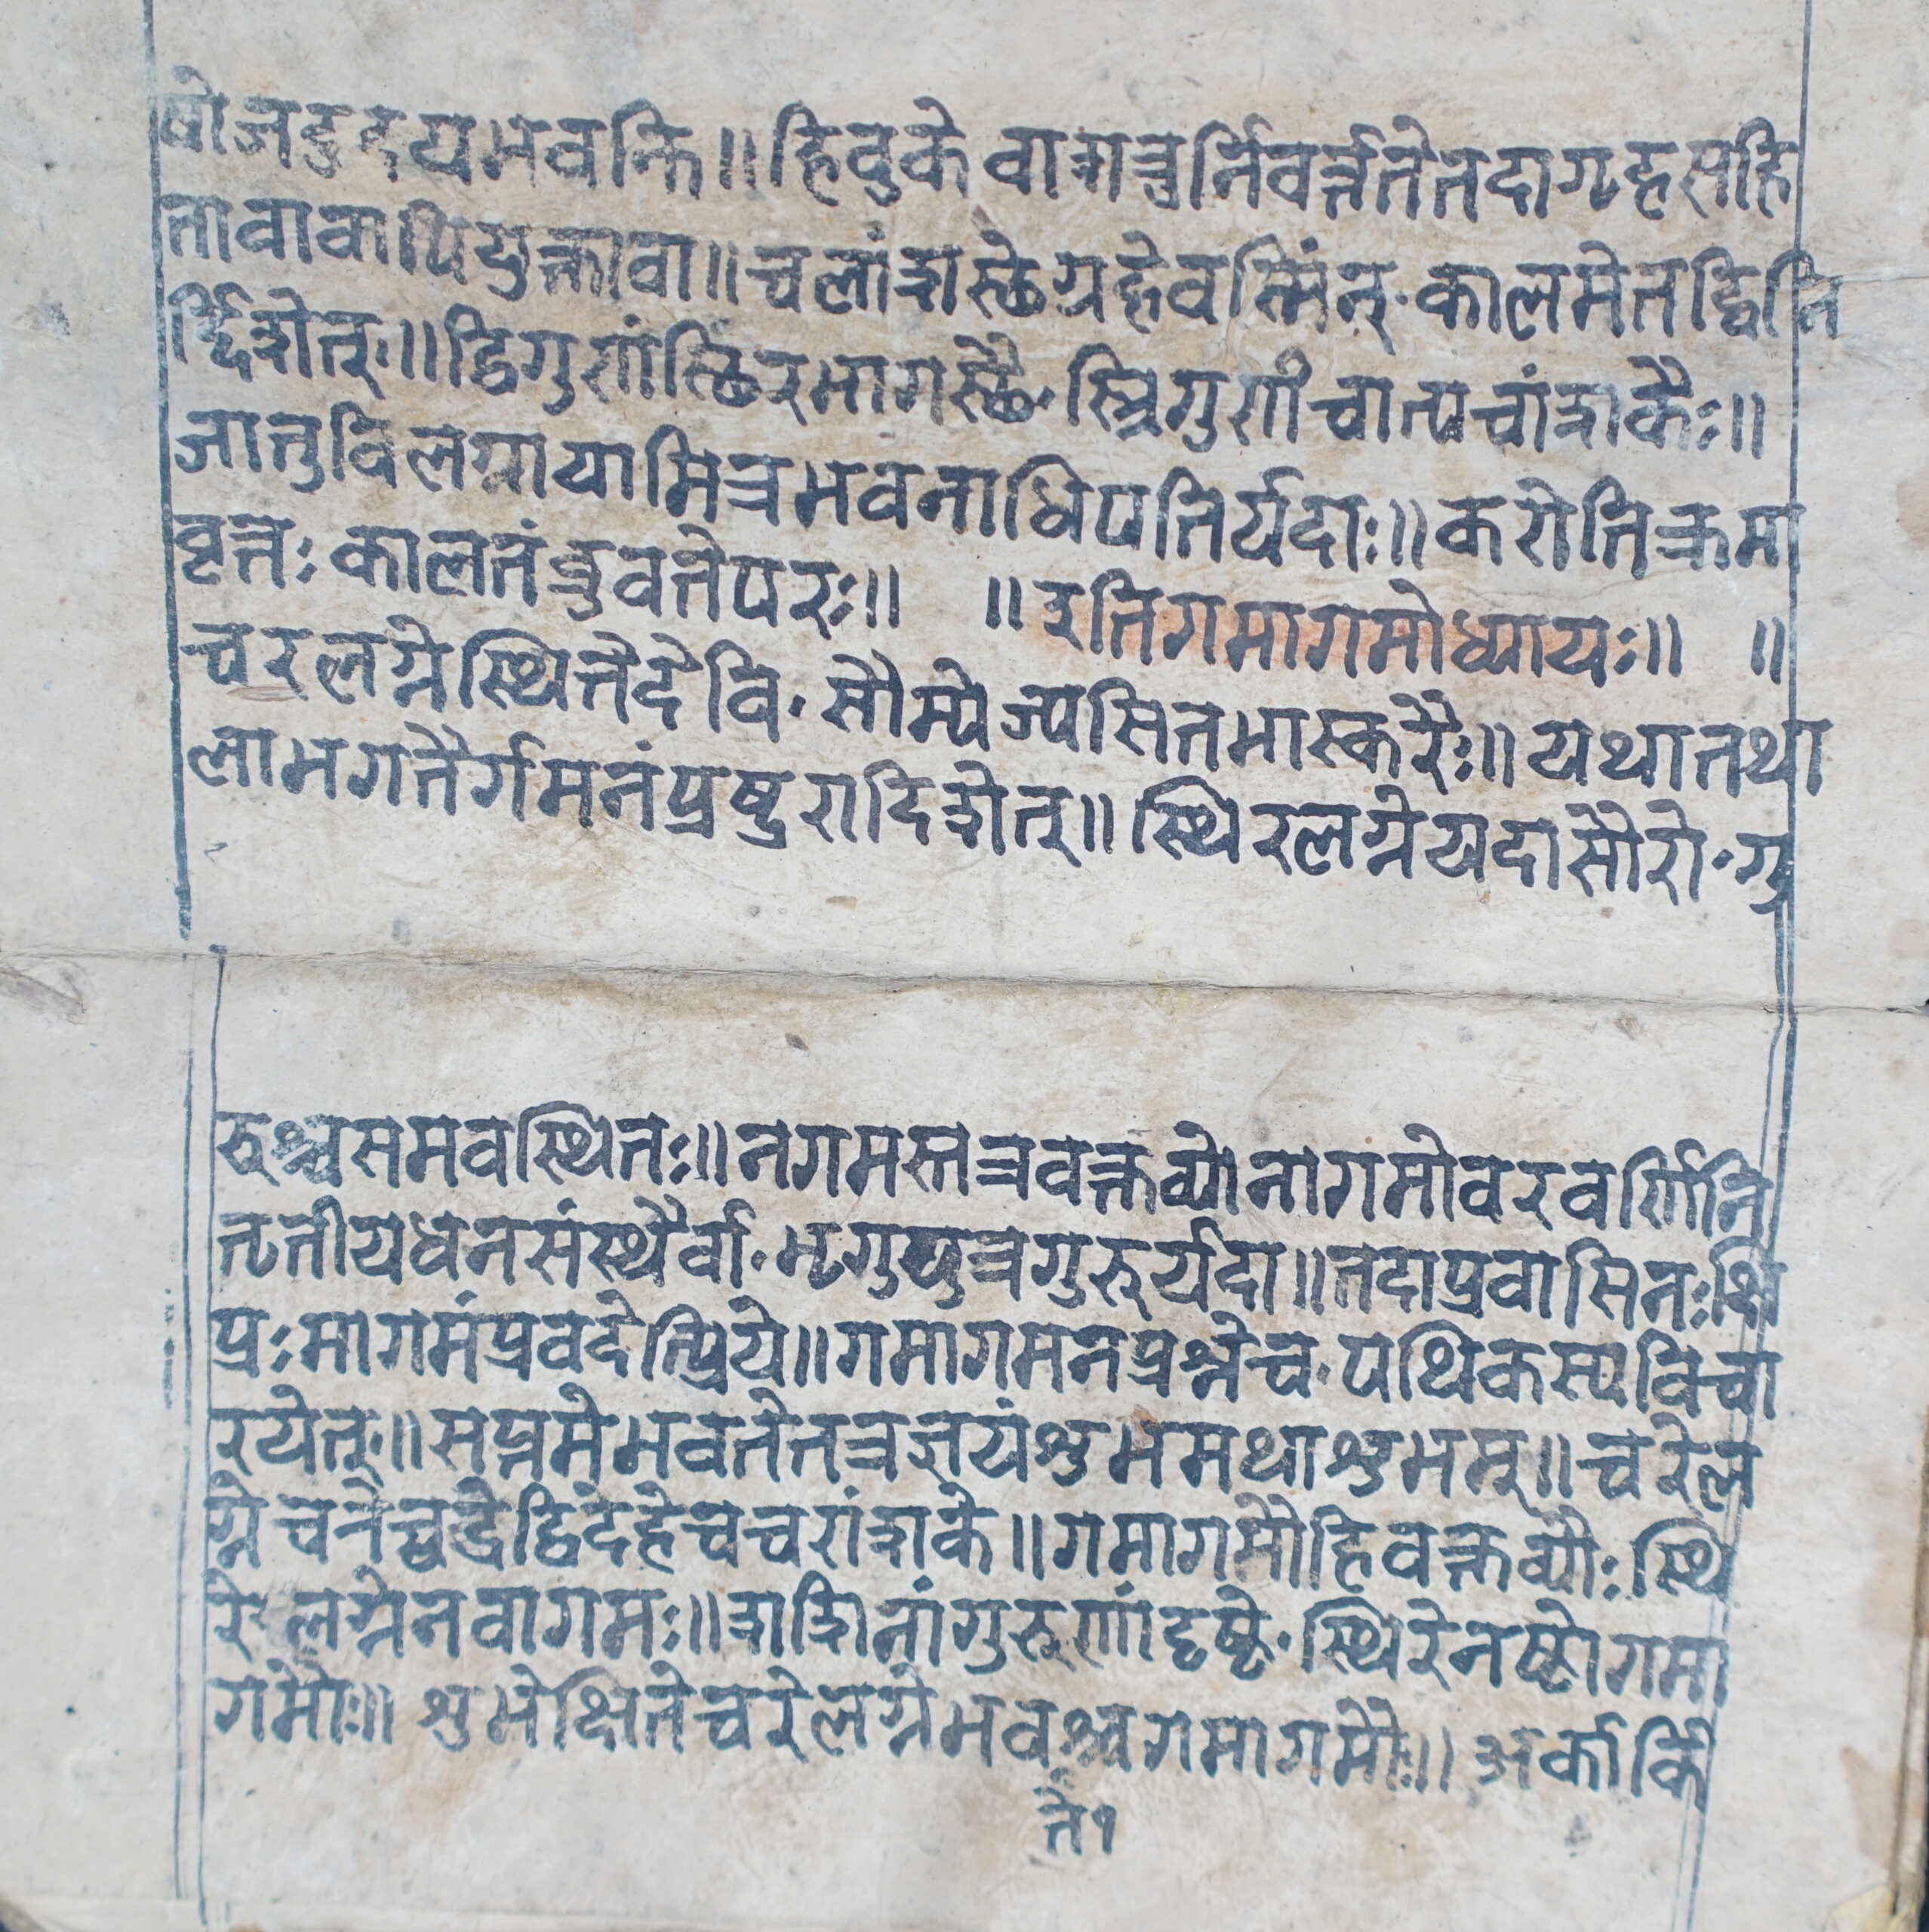 षोजडुदयमवन्ति॥हिवुके वाशत्रुर्निवर्त्ततेतदागृहसहि
तावाकापियुक्तावा॥चलांशस्छेग्रहेवस्मिंन्·कालमेतद्विनि
र्द्दिशेत्॥द्विगुणंस्छिरभागस्छै·स्त्रिगुणं चात्पचांशकैः॥
जातुविलग्नायामित्रभवनाधिपतिर्यदाः॥करोतिक्रमा
वृत्तः कालतंब्रुवतेपरः॥ ॥इतिगमागमोध्यायः॥ ॥
चरलग्नेस्थितैदेवि·सौम्येज्यसितभास्करैः॥यथातथा
लाभगतैर्गमनंप्रष्षुरादिशेत्॥स्थिरलग्नेयदासौरो·गु
रुश्चसमवस्थितः॥नगमस्तत्रवक्तव्योनागमोवरवर्णिनि
तृतीयधनसंस्थैर्वा·भृगुपुत्रगुरुर्यदा॥तदाप्रवासिनःक्षि
प्रःमागमंप्रवदेत्प्रिये॥गमागमनप्रश्नेच·पथिकस्यविचा
रयेत्॥सप्तमेभवतेतत्रज्ञयंशुभमथाशुभम्॥चरेल
ग्नेचनेच्चद्रेद्विदंहेचचरांशके॥गमागमौहिवक्तव्यौःस्थि
रेलग्नेनवागमः॥शशिनांगुरुणांदृष्टे·स्थिरेनष्टोगमा
गमोः॥ शुभेक्षितेचरेलग्नेभवश्चगमागमौः॥ अर्कार्कि
ते१